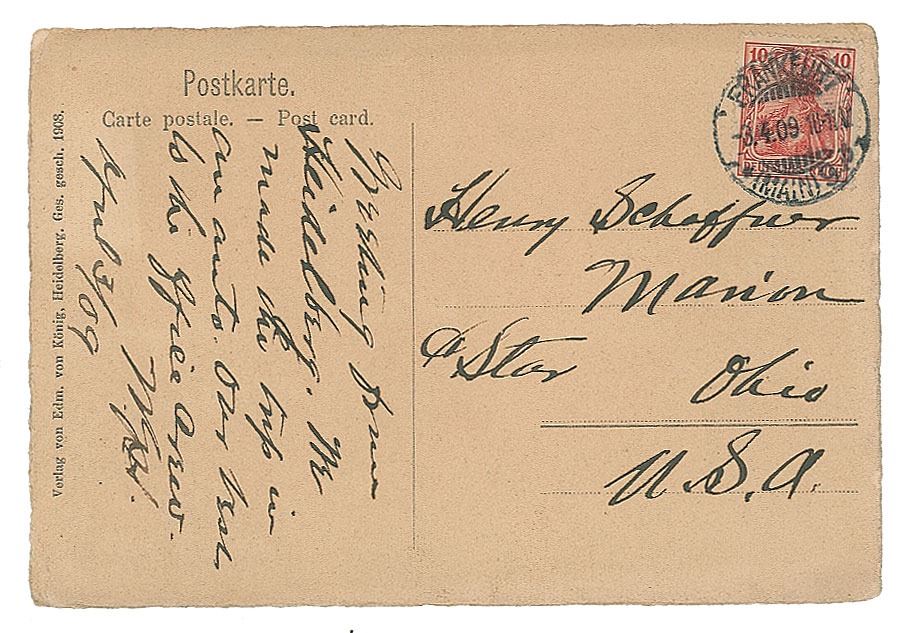 Postkarte.
Carte postale. — Post card.
Verlag von Edm. von König, Heidelberg. Ges. gesch. 1908.
Greeting from
Heidelberg. We
made the trip in
an auto. Our best
to the office crew.
April 3/09
10 10
FRANKFURT
-3.4.09
(MAIN)
DEUTSCHES REICH
Henry Schaffner
Marion
℅ Star
Ohio
U.S.A.